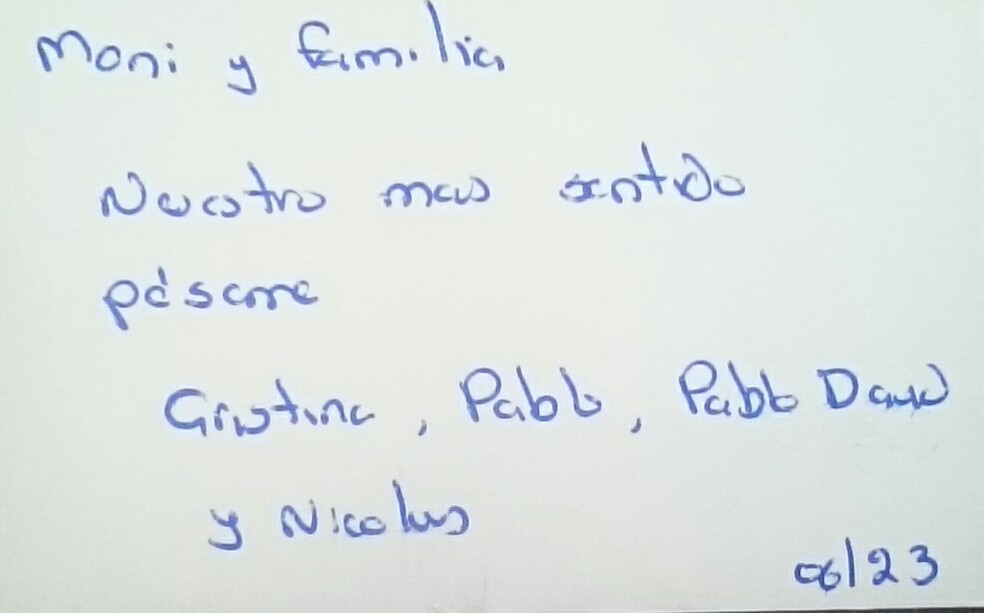 Moni y familia
Nuestro mas sentido
pésame
Cristina, Pablo, Pablo David
y Nicolas
06/23